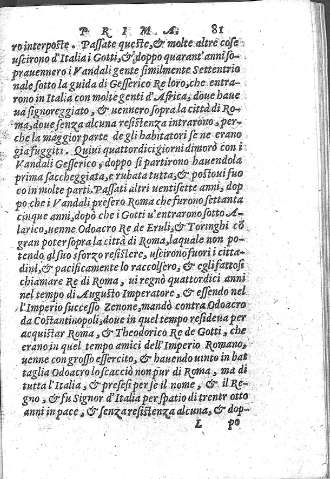 PRIMA. 81
ro interposte. Passate queste, & molte altre cose
uscirono d'Italia i Gotti, & doppo quarant'anni so-
prauennero i Vandali gente similmente Settentrio
nale sotto la guida di Gesserico Re loro, che entra-
rono in Italia con molte genti d'Africa, doue haue
ua signoreggiato, & uennero sopra la città di Ro-
ma, doue senza alcuna resistenza intrarono, per-
che la maggior parte de gli habitatori se ne erano
gia fuggiti. Quiui quattordici giorni dimorò con i
Vandali Gesserico, doppo si partirono hauendola
prima saccheggiata, e rubata tutta, & postoui fuo
co in molte parti. Passati altri uentisette anni, dop
po che i Vandali presero Roma che furono settanta
cinque anni, dopò che i Gotti u'entrarono sotto A-
larico, uenne Odoacro Re de Eruli, & Toringhi cō
gran poter sopra la città di Roma, laquale non po-
tendo al suo sforzo resistere, uscirono fuori i citta-
dini, & pacificamente lo raccolsero, & egli fattosi
chiamare Re di Roma, ui regnò quattordici anni
nel tempo di Augusto Imperatore, & essendo nel
l'Imperio successo Zenone, mandò contra Odoacro
da Costantinopoli, doue in quel tempo residena per
acquistar Roma, & Theodorico Re de Gotti, che
erano in quel tempo amici dell'Imperio Romano,
uenne con grosso essercito, & hauendo uinto in bat
taglia Odoacro lo scacciò non pur di Roma, ma di
tutta l'Italia, & presesi per se il nome, & il Re-
gno, & fu Signor d'Italia per spatio di trent'otto
anni in pace, & senza resistenza alcuna, & dop-
L po